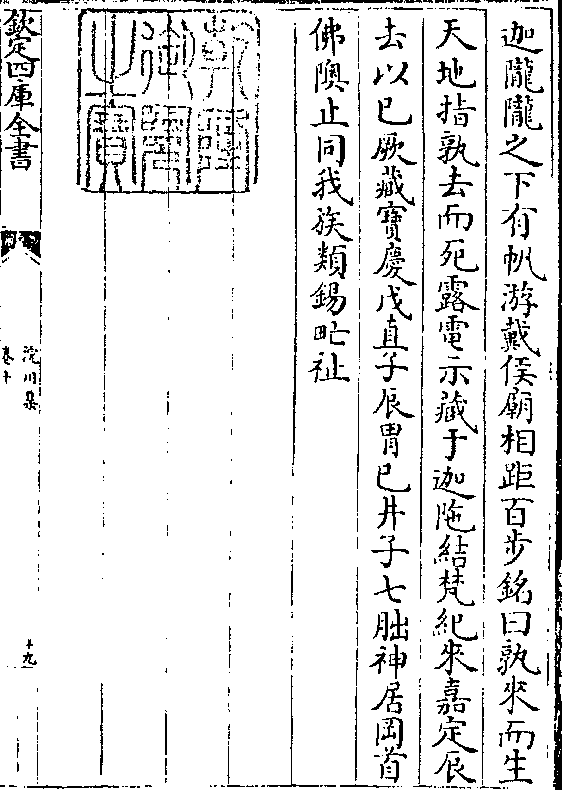 迦隴隴之下有帆游戴侯廟相距百步銘曰孰來而生
天地指孰去而死露電示藏于迦陁結梵紀來嘉定辰
去以巳厥藏寶慶戊直子辰胃巳井子七朏神居岡首
佛隩止同我族類錫甿祉
乾隆御覽之寶
欽定四庫全書
浣川集
卷十
十九